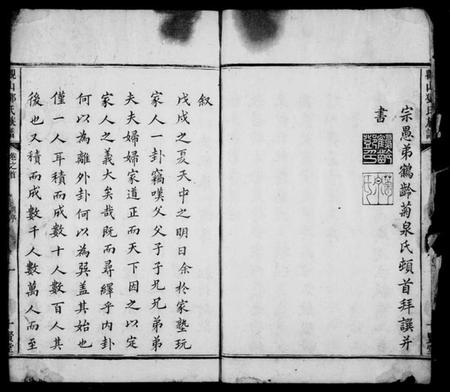 宗愚弟鶴齡菊泉氏頓首拜譔并
書
叙
戊戌之夏天中之明日余於家塾玩
家人一卦竊嘆父父子子兄兄弟弟
夫夫婦婦家道正而天下因之以定
家人之義大矣哉既而尋繹乎內卦
何以為離外卦何以為巽蓋其始也
僅一人耳積而成數十人數百人其
後也又積而成數千人數萬人而至